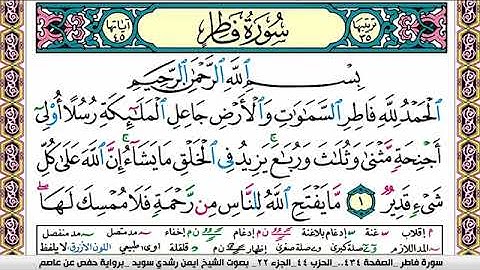 ترتيبها ٣٥ سُورَةُ فَاطِرٍ آياتها ٤٥
بِسْمِ ٱللَّهِ ٱلرَّحْمَٰنِ ٱلرَّحِيمِ
ٱلْحَمْدُ لِلَّهِ فَاطِرِ ٱلسَّمَٰوَٰتِ وَٱلْأَرْضِ جَاعِلِ ٱلْمَلَٰٓئِكَةِ رُسُلًا أُو۟لِىٓ
أَجْنِحَةٍ مَّثْنَىٰ وَثُلَٰثَ وَرُبَٰعَ ۚ يَزِيدُ فِى ٱلْخَلْقِ مَا يَشَآءُ ۚ إِنَّ ٱللَّهَ عَلَىٰ كُلِّ
شَىْءٍ قَدِيرٌ ١ مَّا يَفْتَحِ ٱللَّهُ لِلنَّاسِ مِن رَّحْمَةٍ فَلَا مُمْسِكَ لَهَا ۖ
م إقلاب غنة إدغام بلاغنة إدغام إخفاء مد متصل مد منفصل
المد اللازم صلة كبرى صلة صغرى إظهار قلقلة مد طبيعي اللون الأزرق لا يلفظ
سورة فاطر_الصفحة ٤٣٤_الحزب ٤٤_الجزء ٢٢_ بصوت الشيخ ايمن رشدي سويد _برواية حفص عن عاصم